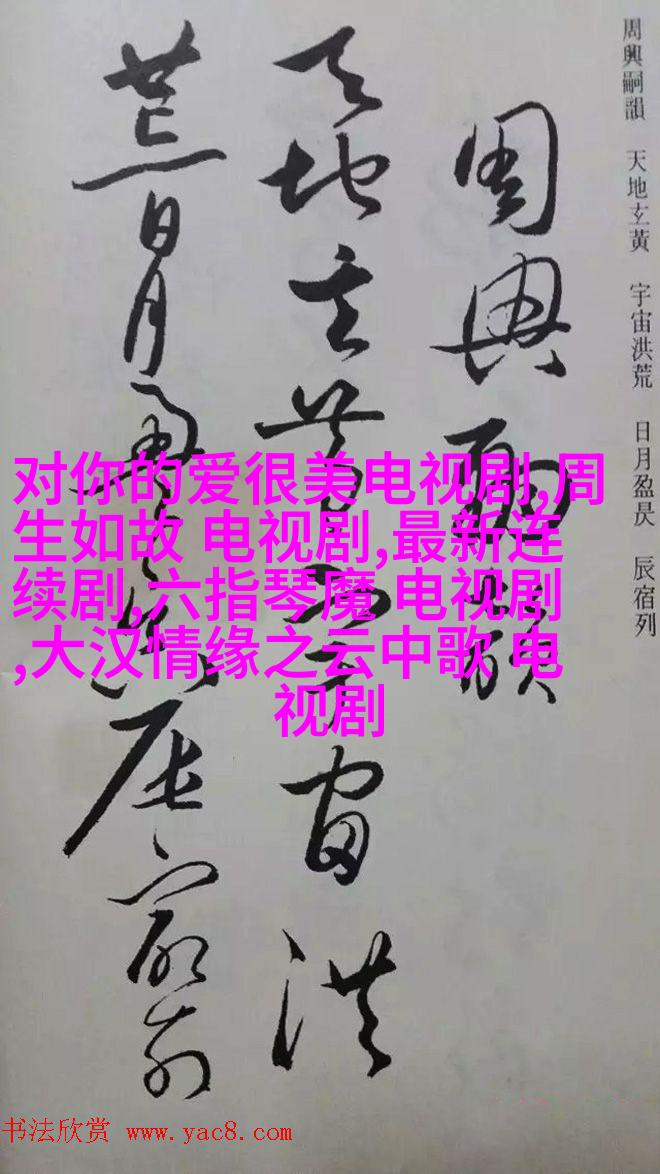 周興嗣韻 天地玄黃 宇宙洪荒 日月盈昃 辰宿列
周興嗣韻
天地玄黃宇宙洪
荒日月盈昃辰宿列
对你的爱很美电视剧,周
生如故 电视剧,最新连
续剧,六指琴魔 电视剧
,大汉情缘之云中歌 电
视剧
书法欣赏 www.yac8.com